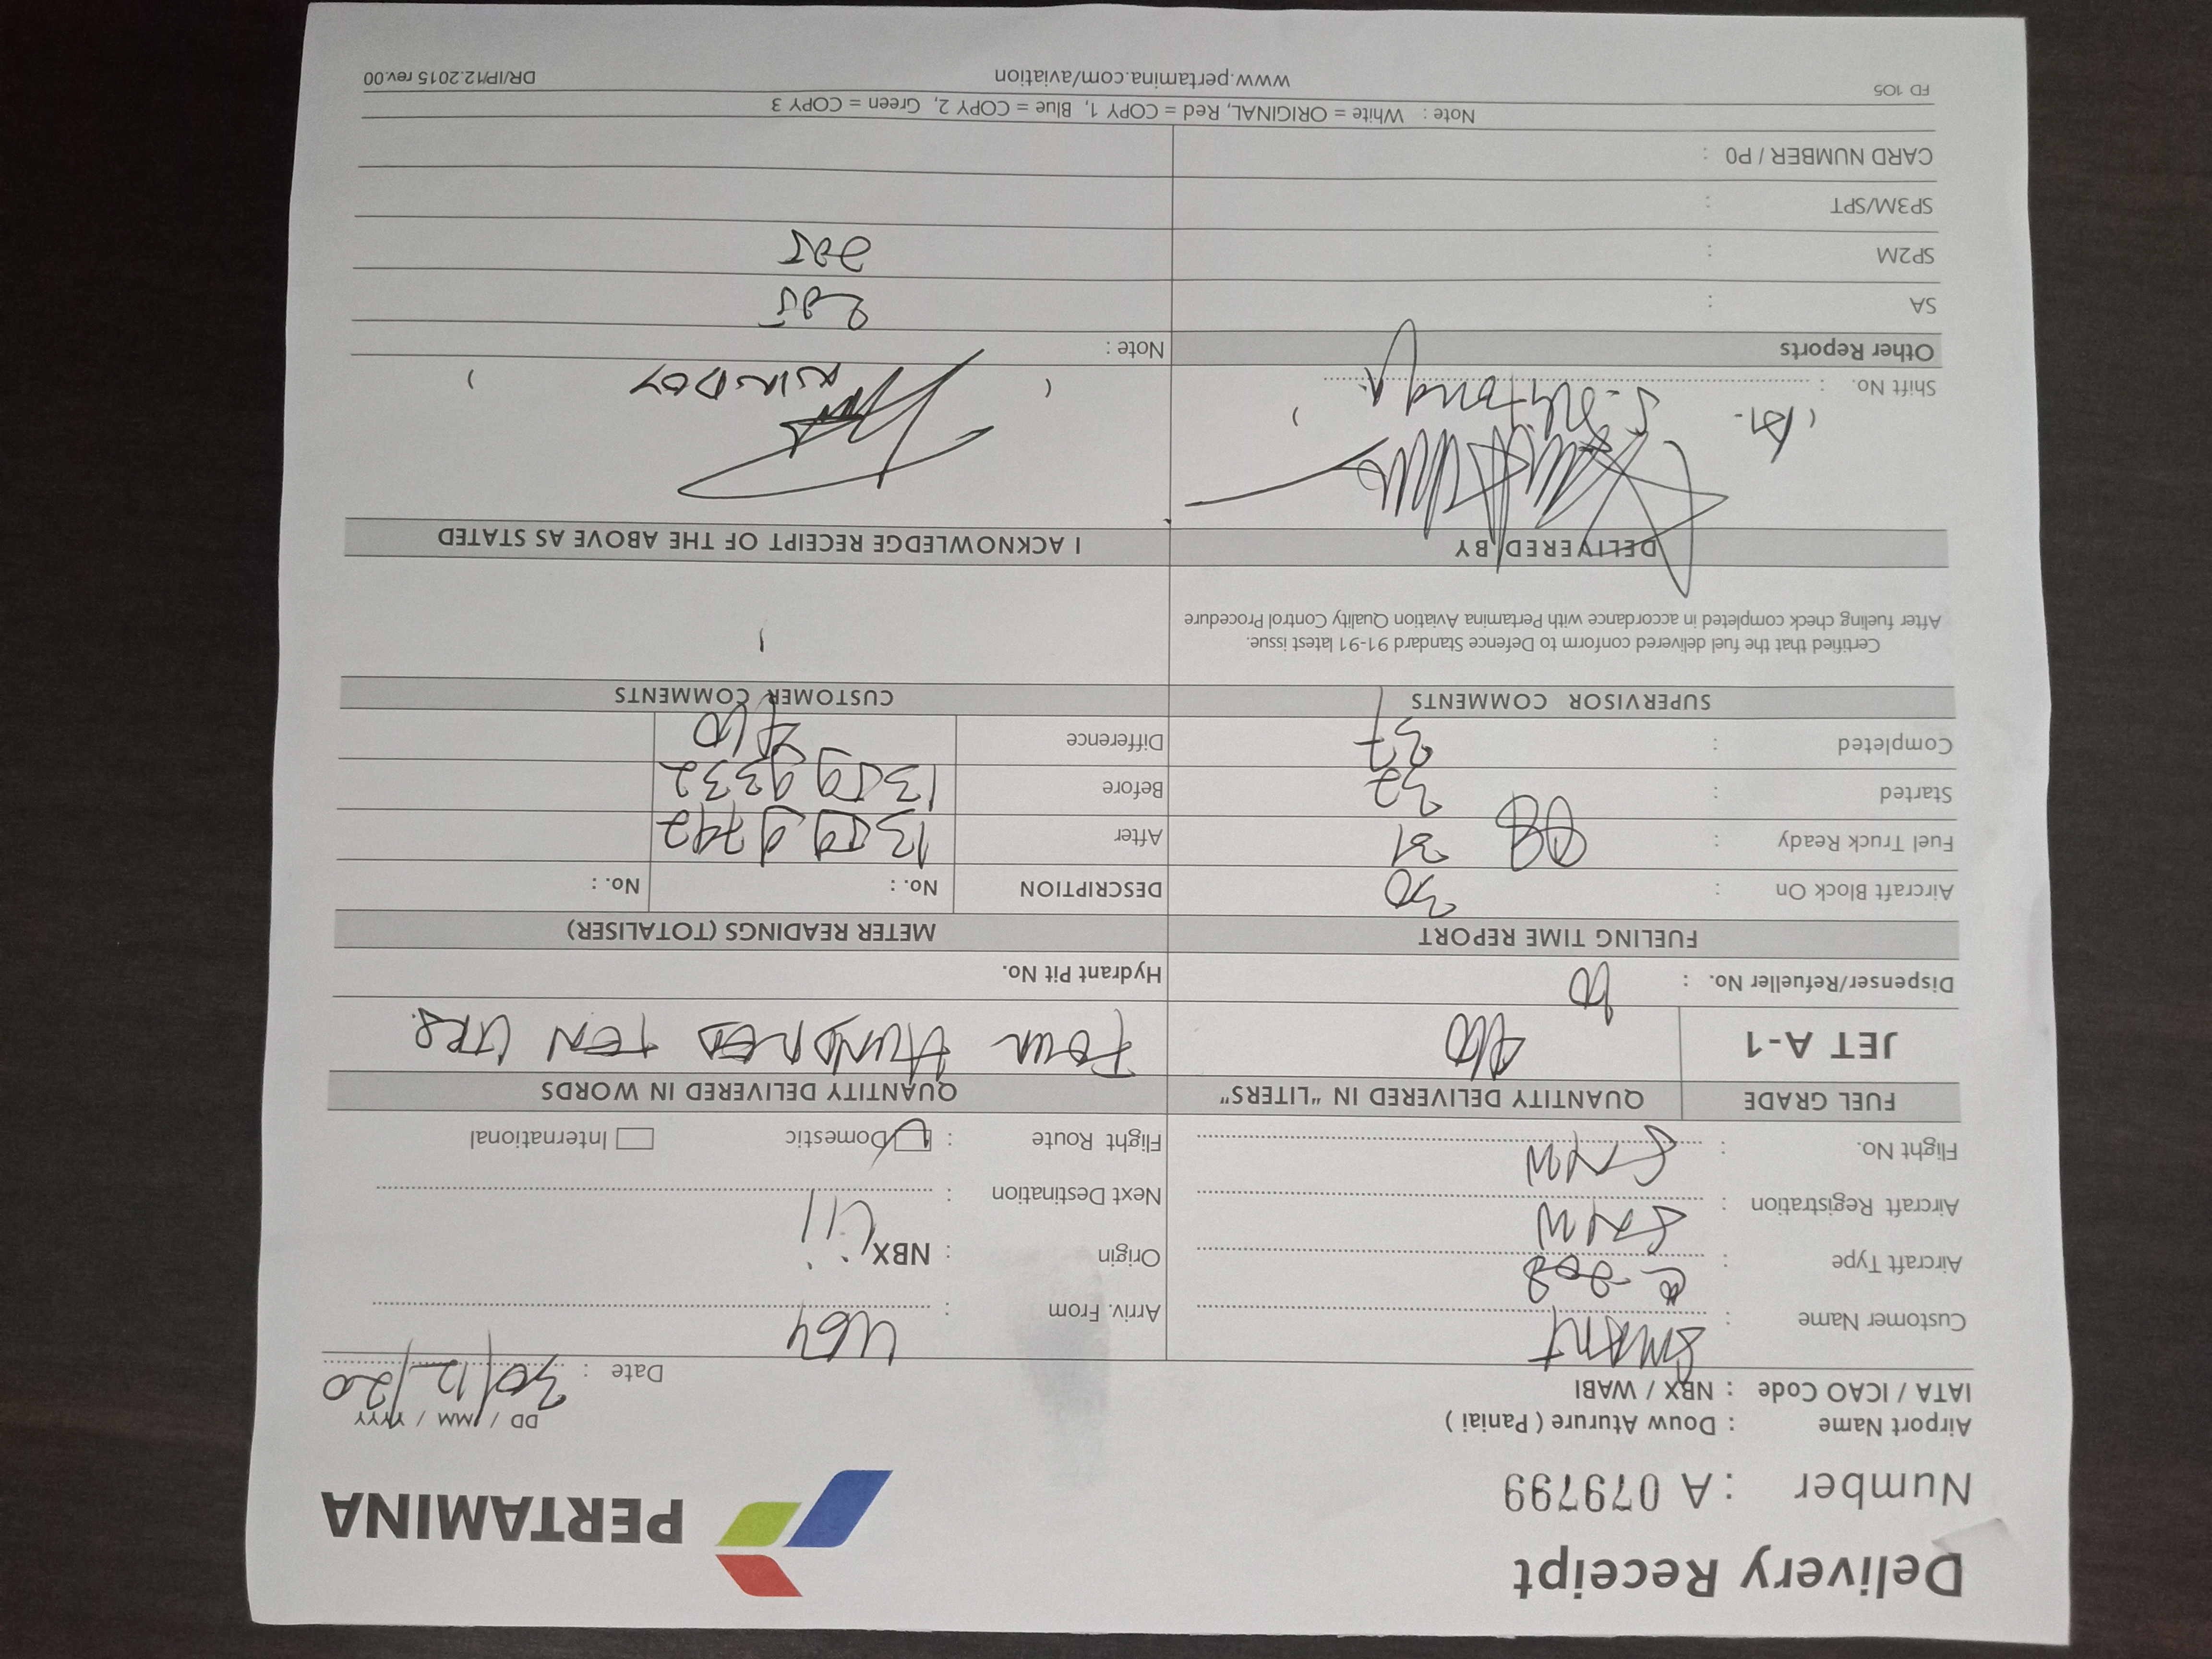 Delivery Receipt
PERTAMINA
Number : A 079799
Airport Name : Douw Aturure ( Paniai )
DD / MM / YYYY
IATA / ICAO Code : NBX / WABI
Date : 30/12/20
Customer Name : SMART
Arriv. From : UGY
Aircraft Type : C-208
Origin : NBX
Aircraft Registration : SNW
Next Destination :
Flight No. : SNW
Flight Route : Domestic International
FUEL GRADE QUANTITY DELIVERED IN "LITERS" QUANTITY DELIVERED IN WORDS
JET A-1 410 Four HUNDRED TEN LTRS.
Dispenser/Refueller No. : 10
Hydrant Pit No.
FUELING TIME REPORT METER READINGS (TOTALISER)
Aircraft Block On : 30
DESCRIPTION No. : No. :
Fuel Truck Ready : 31
After 13599742
Started : 32
Before 13599332
Completed : 37
Difference 410
SUPERVISOR COMMENTS CUSTOMER COMMENTS
Certified that the fuel delivered conform to Defence Standard 91-91 latest issue.
After fueling check completed in accordance with Pertamina Aviation Quality Control Procedure
DELIVERED BY I ACKNOWLEDGE RECEIPT OF THE ABOVE AS STATED
( ) ( )
Shift No. :
Other Reports Note :
SA :
205
SP2M :
205
SP3M/SPT :
CARD NUMBER / P0 :
Note : White = ORIGINAL, Red = COPY 1, Blue = COPY 2, Green = COPY 3
FD 105 www.pertamina.com/aviation DR/IP/12.2015 rev.00